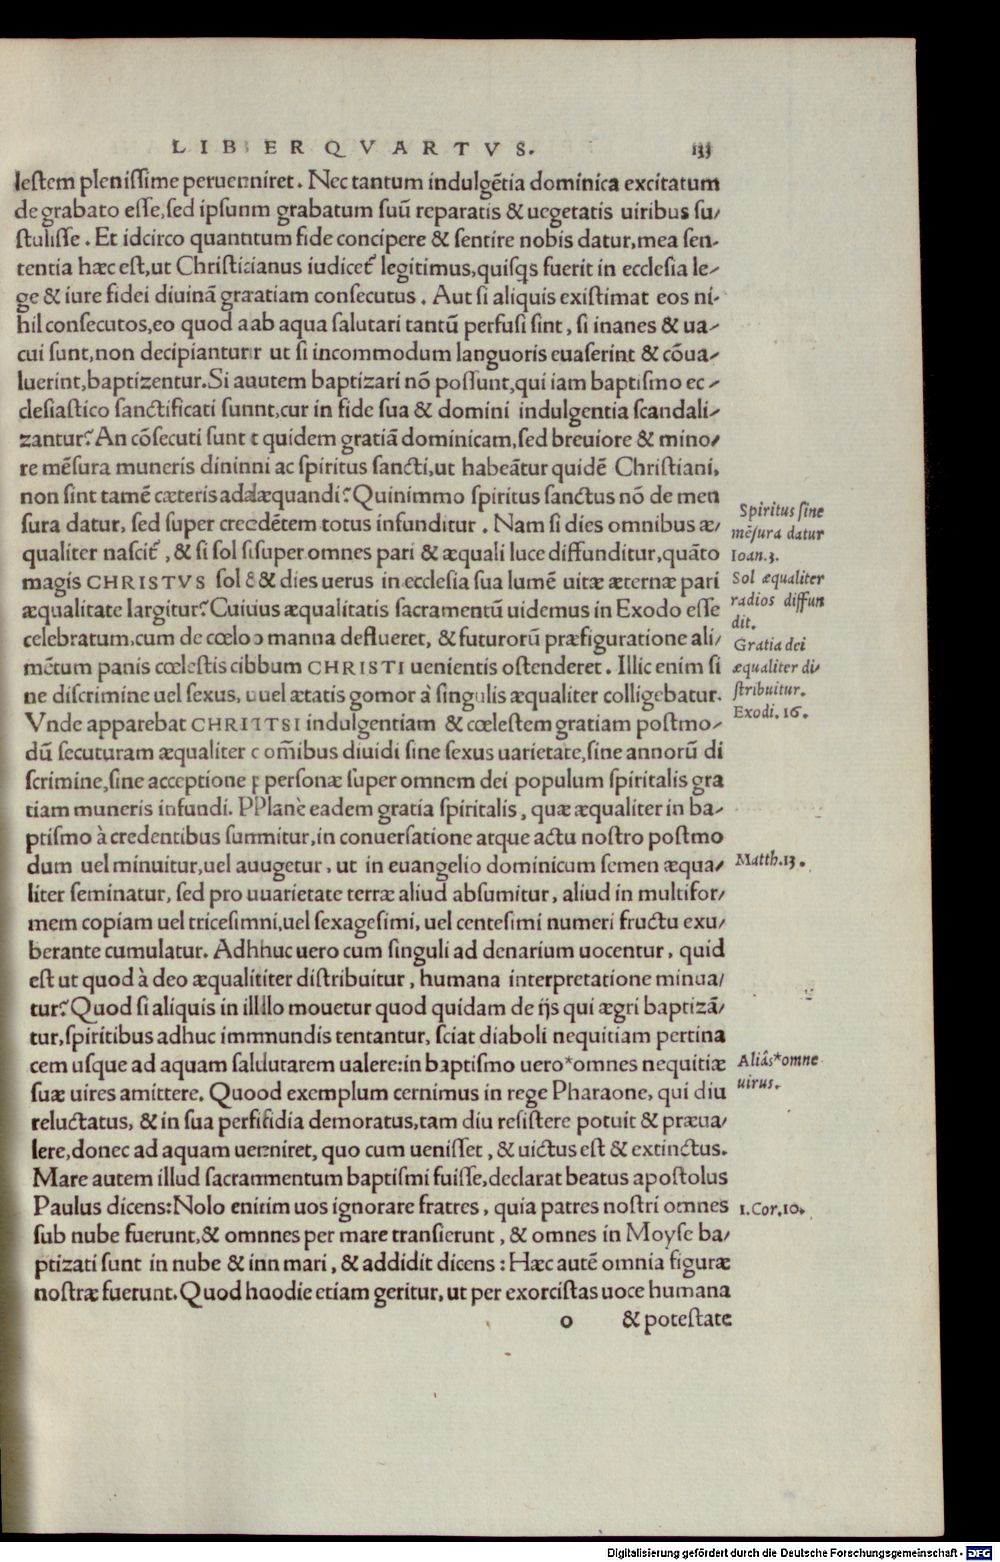 LIBER QVARTVS. 133
leſtem pleniſſime peruenniret. Nec tantum indulgētia dominica excitatum
de grabato eſſe, ſed ipſunm grabatum ſuū reparatis & uegetatis uiribus ſu/
ſtuliſſe. Et idcirco quanntum fide concipere & ſentire nobis datur, mea ſen-
tentia hæc eſt, ut Chriſtiianus iudicet᷒ legitimus, quiſq̃s fuerit in eccleſia le/
ge & iure fidei diuinā graatiam conſecutus. Aut ſi aliquis exiſtimat eos ni-
hil conſecutos, eo quod aab aqua ſalutari tantū perfuſi ſint, ſi inanes & ua/
cui ſunt, non decipianturr ut ſi incommodum languoris euaſerint & cōua/
luerint, baptizentur. Si auutem baptizari nō poſſunt, qui iam baptiſmo ec/
cleſiaſtico ſanctificati ſunnt, cur in fide ſua & domini indulgentia ſcandali/
zantur? An cōſecuti ſunt t quidem gratiā dominicam, ſed breuiore & mino/
re mēſura muneris dininni ac ſpiritus ſancti, ut habeātur quidē Chriſtiani,
non ſint tamē cæteris adalæquandi? Quinimmo ſpiritus ſanctus nō de men
ſura datur, ſed ſuper creedētem totus infunditur. Nam ſi dies omnibus æ/
qualiter naſcit᷒, & ſi ſol ſiſuper omnes pari & æquali luce diffunditur, quāto
magis CHRISTVS ſol & & dies uerus in eccleſia ſua lumē uitæ æternæ pari
æqualitate largitur? Cuiuius æqualitatis ſacramentū uidemus in Exodo eſſe
celebratum, cum de cœlo o manna deflueret, & futurorū præfiguratione ali/
mētum panis cœleſtis cibbum CHRISTI uenientis oſtenderet. Illic enim ſi
ne diſcrimine uel ſexus, uuel ætatis gomor à ſingulis æqualiter colligebatur.
Vnde apparebat CHRITTSI indulgentiam & cœleſtem gratiam poſtmo/
dū ſecuturam æqualiter c om̄ibus diuidi ſine ſexus uarietate, ſine annorū di
ſcrimine, ſine acceptione p perſonæ ſuper omnem dei populum ſpiritalis gra
tiam muneris infundi. PPlanè eadem gratia ſpiritalis, quæ æqualiter in ba/
ptiſmo à credentibus ſummitur, in conuerſatione atque actu noſtro poſtmo
dum uel minuitur, uel auugetur, ut in euangelio dominicum ſemen æqua/
liter ſeminatur, ſed pro uuarietate terræ aliud abſumitur, aliud in multifor/
mem copiam uel triceſimni, uel ſexageſimi, uel centeſimi numeri fructu exu/
berante cumulatur. Adhhuc uero cum ſinguli ad denarium uocentur, quid
eſt ut quod à deo æqualititer diſtribuitur, humana interpretatione minua/
tur? Quod ſi aliquis in illillo mouetur quod quidam de ijs qui ægri baptizā/
tur, ſpiritibus adhuc immmundis tentantur, ſciat diaboli nequitiam pertina
cem uſque ad aquam ſallutarem ualere: in baptiſmo uero*omnes nequitiæ
ſuæ uires amittere. Quood exemplum cernimus in rege Pharaone, qui diu
reluctatus, & in ſua perfifidia demoratus, tam diu reſiſtere potuit & præua/
lere, donec ad aquam uenniret, quo cum ueniſſet, & uictus eſt & extinctus.
Mare autem illud ſacrammentum baptiſmi fuiſſe, declarat beatus apoſtolus
Paulus dicens: Nolo eniim uos ignorare fratres, quia patres noſtri omnes
ſub nube fuerunt, & omnnes per mare tranſierunt, & omnes in Moyſe ba/
ptizati ſunt in nube & inn mari, & addidit dicens: Hæc autē omnia figuræ
noſtræ fuerunt. Quod hoodie etiam geritur, ut per exorciſtas uoce humana
o & poteſtate
Spiritus ſine
mēſura datur
Ioan.3.
Sol æqualiter
radios diffun
dit.
Gratia dei
æqualiter di/
ſtribuitur.
Exodi. 16.
Matth.13.
Aliâs*omne
uirus.
1.Cor.10.
Digitalisierung gefördert durch die Deutsche Forschungsgemeinschaft - DFG